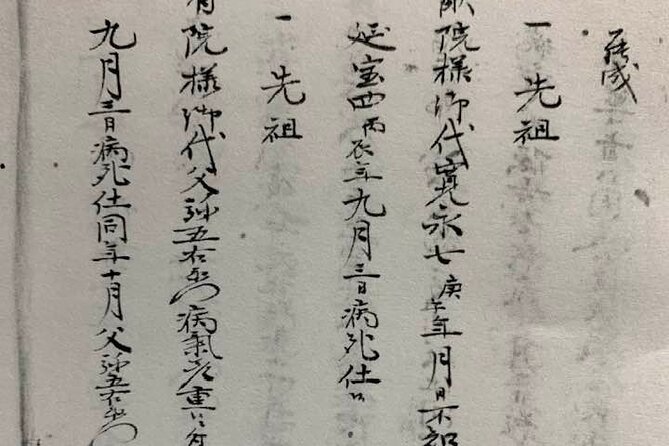 罷成
一 先祖
院様御代寛永七庚午年月日不
延宝四丙辰年九月三日病死仕候
一 先祖
有院様御代父弥五右衛門病氣差重ニ
九月三日病死仕同年十月父弥五右衛門